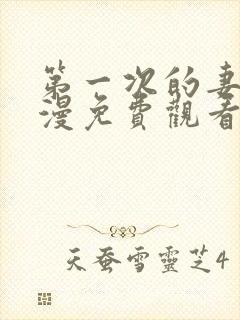 第一次的妻
漫免費觀看
天蚕雪靈芝4